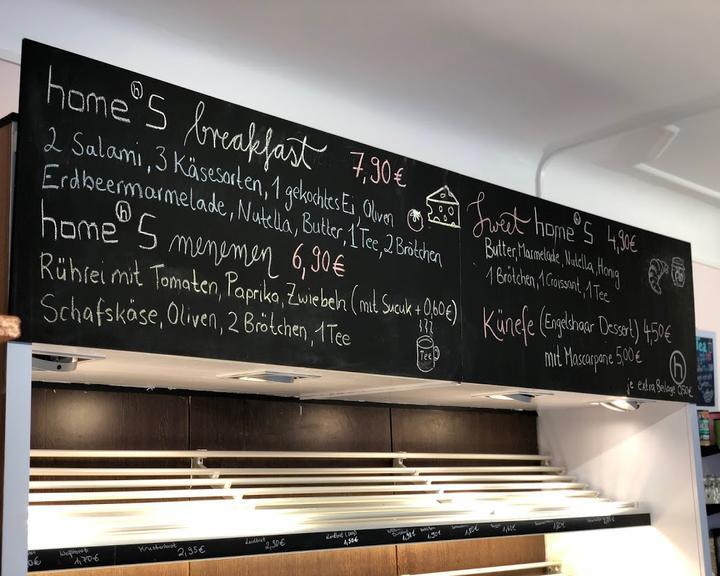 home's breakfast 7,90€
2 Salami, 3 Käsesorten, 1 gekochtes Ei, Oliven
Erdbeermarmelade, Nutella, Butter, 1 Tee, 2 Brötchen
home's menemen 6,90€
Rührei mit Tomaten, Paprika, Zwiebeln (mit Sucuk + 0,60€)
Schafskäse, Oliven, 2 Brötchen, 1 Tee
Tee
Sweet home's 4,90€
Butter, Marmelade, Nutella, Honig
1 Brötchen, 1 Croissant, 1 Tee
Künefe (Engelshaar Dessert) 4,50€
mit Mascarpone 5,00€
h
je extra Beilage 0,50€
1,70€ Krustenbrot 2,95€ Landbrot 2,90€